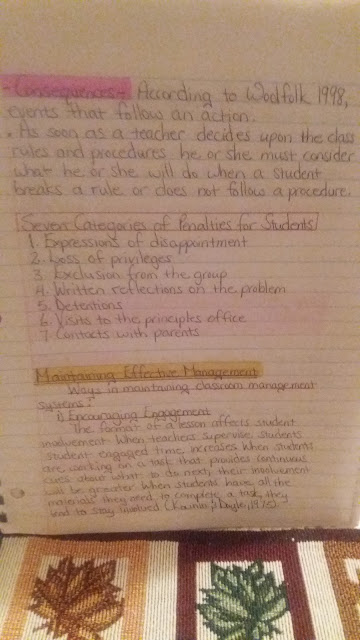 -Consequences- According to Woolfolk 1998,
events that follow an action.
• As soon as a teacher decides upon the class
rules and procedures he or she must consider
what he or she will do when a student
breaks a rule or does not follow a procedure.
Seven Categories of Penalties for Students
1. Expressions of disappointment
2. Loss of privileges
3. Exclusion from the group
4. Written reflections on the problem
5. Detentions
6. Visits to the principles office
7. Contacts with parents
Maintaining Effective Management
Ways in maintaining classroom management
systems:-
i) Encouraging Engagement
The format of a lesson affects student
involvement. When teachers supervise students
student engaged time, increases when students
are working on a task that provides continuous
cues about what to do next, their involvement
will be greater. When students have all the
materials they need to complete a task, they
tend to stay involved (Kounin & Doyle, 1975).